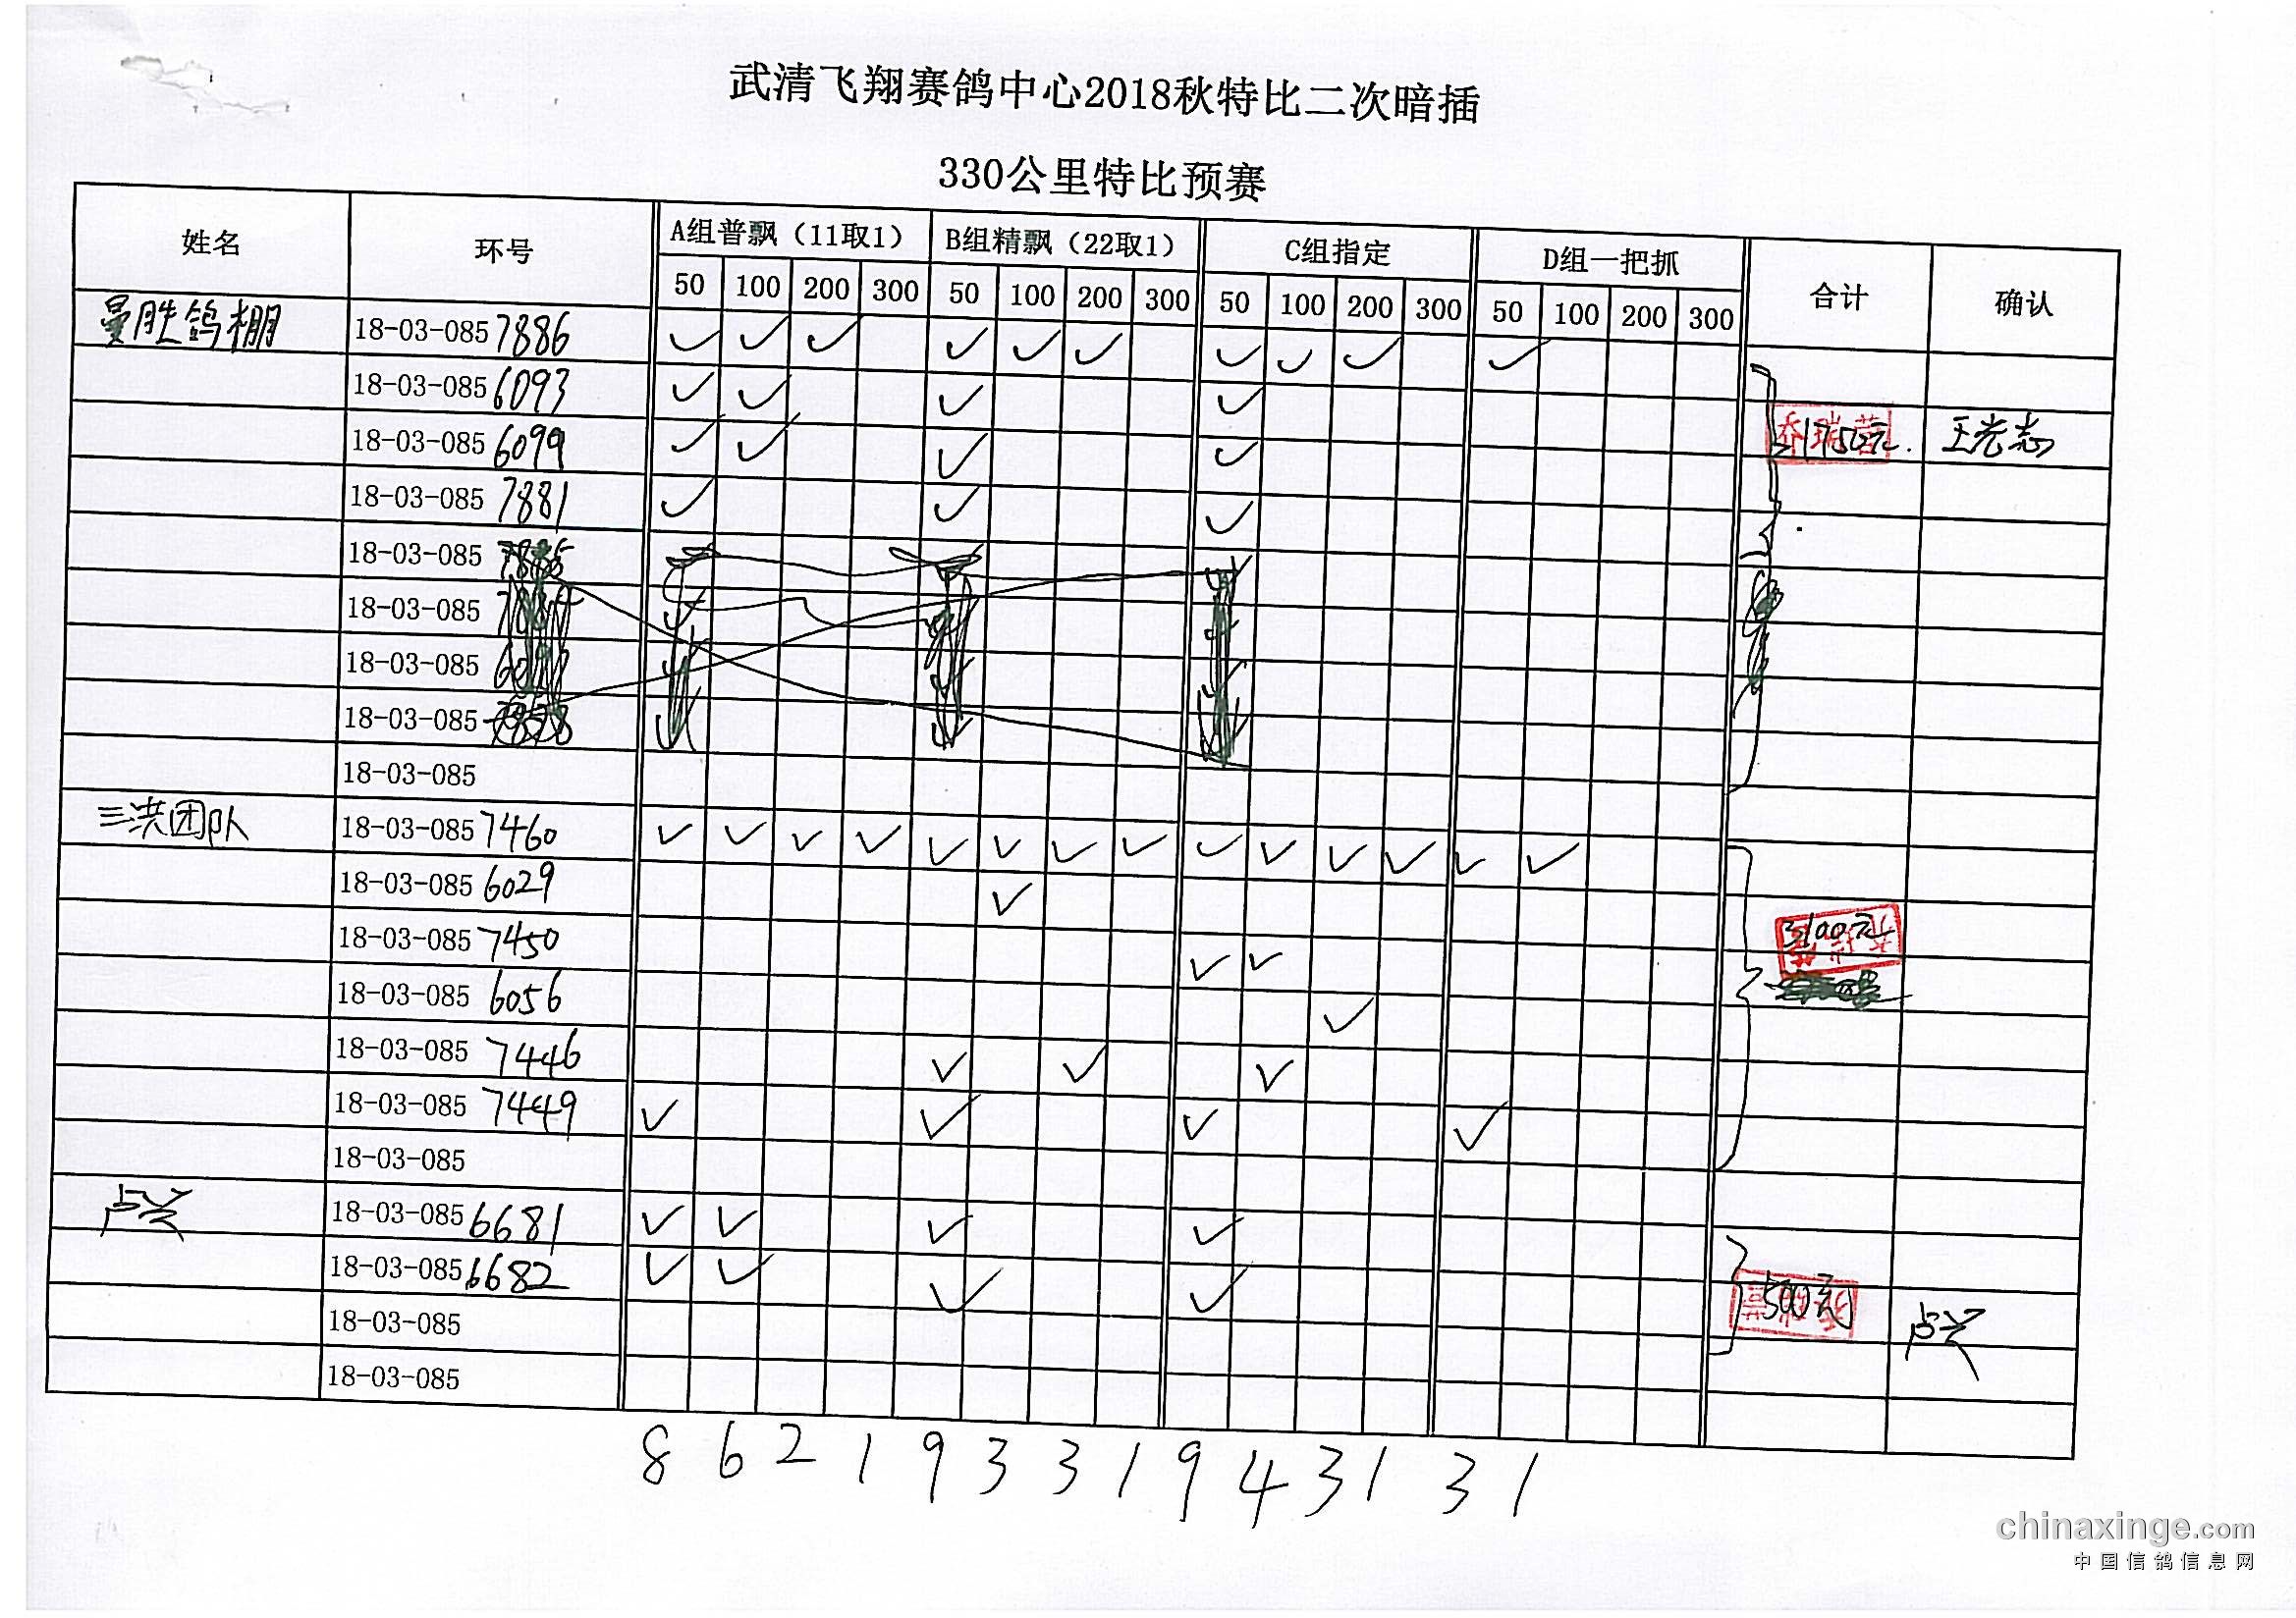 武清飞翔赛鸽中心2018秋特比二次暗插
330公里特比预赛
姓名 环号 A组普飘（11取1） B组精飘（22取1） C组指定 D组一把抓 合计 确认
50 100 200 300 50 100 200 300 50 100 200 300 50 100 200 300
曼胜鸽棚 18-03-085 7886 ✓ ✓ ✓ ✓ ✓ ✓ ✓ ✓ ✓ ✓
18-03-085 6093 ✓ ✓ ✓ ✓
18-03-085 6099 ✓ ✓ ✓ ✓ 1750元. 王光志
18-03-085 7881 ✓ ✓ ✓
18-03-085
18-03-085
18-03-085
18-03-085
18-03-085
三洪团队 18-03-085 7460 ✓ ✓ ✓ ✓ ✓ ✓ ✓ ✓ ✓ ✓ ✓ ✓ ✓ ✓
18-03-085 6029 ✓
18-03-085 7450 ✓ ✓ 3100元
18-03-085 6056 ✓
18-03-085 7446 ✓ ✓ ✓
18-03-085 7449 ✓ ✓ ✓ ✓
18-03-085
卢兴 18-03-085 6681 ✓ ✓ ✓ ✓
18-03-085 6682 ✓ ✓ ✓ ✓ 500元 卢兴
18-03-085
18-03-085
8 6 2 1 9 3 3 1 9 4 3 1 3 1
chinaxinge.com
中国信鸽信息网